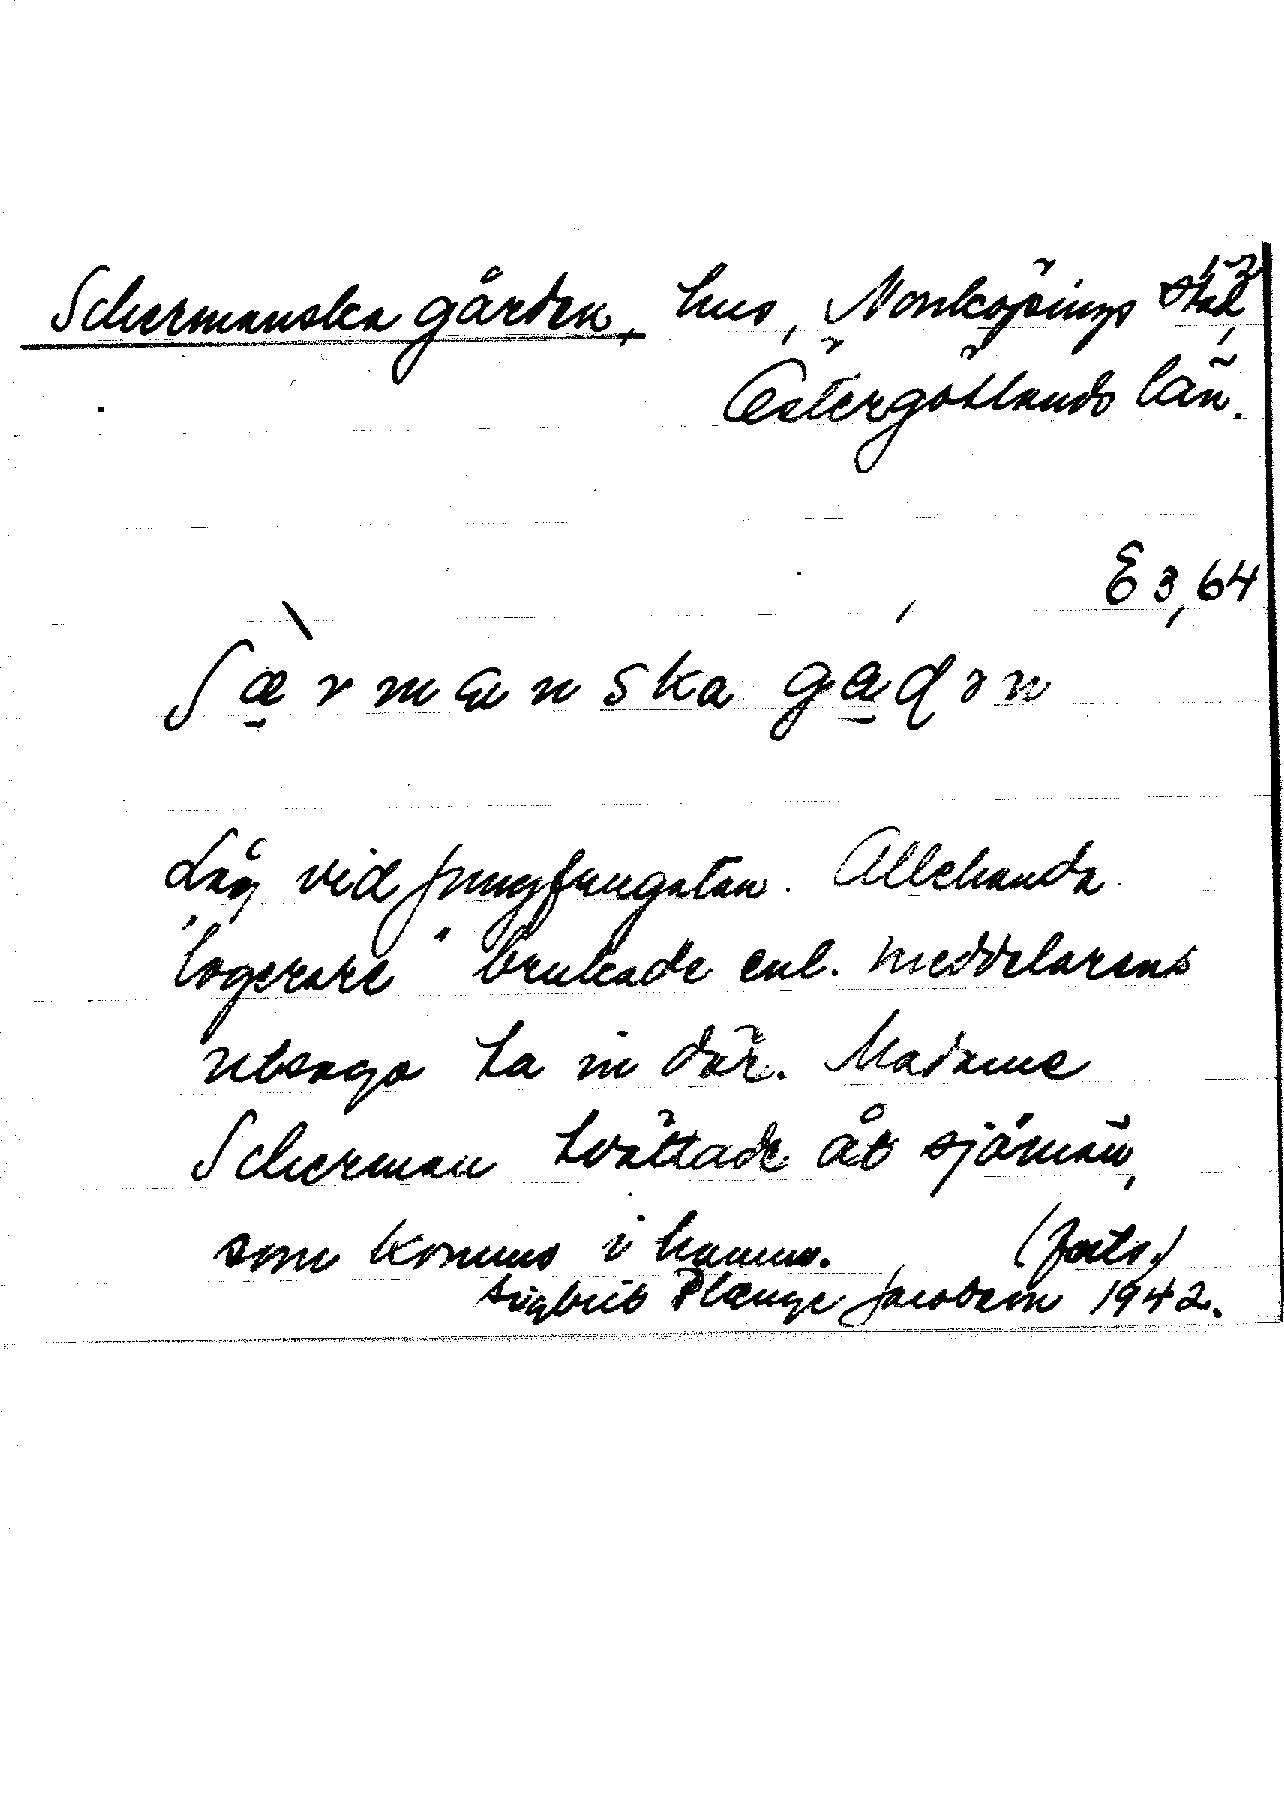 Schermanska gården, hus, Norrköpings stad,
Östergötlands län.
E 3,64
Låg vid Jungfrugatan. Allehanda
"logerare" brukade enl. meddelarens
utsago ta in där. Madame
Scherman tvättade åt sjömän,
som kommo i hamn. (forts.)
Sigbrit Plænge Jacobson 1942.